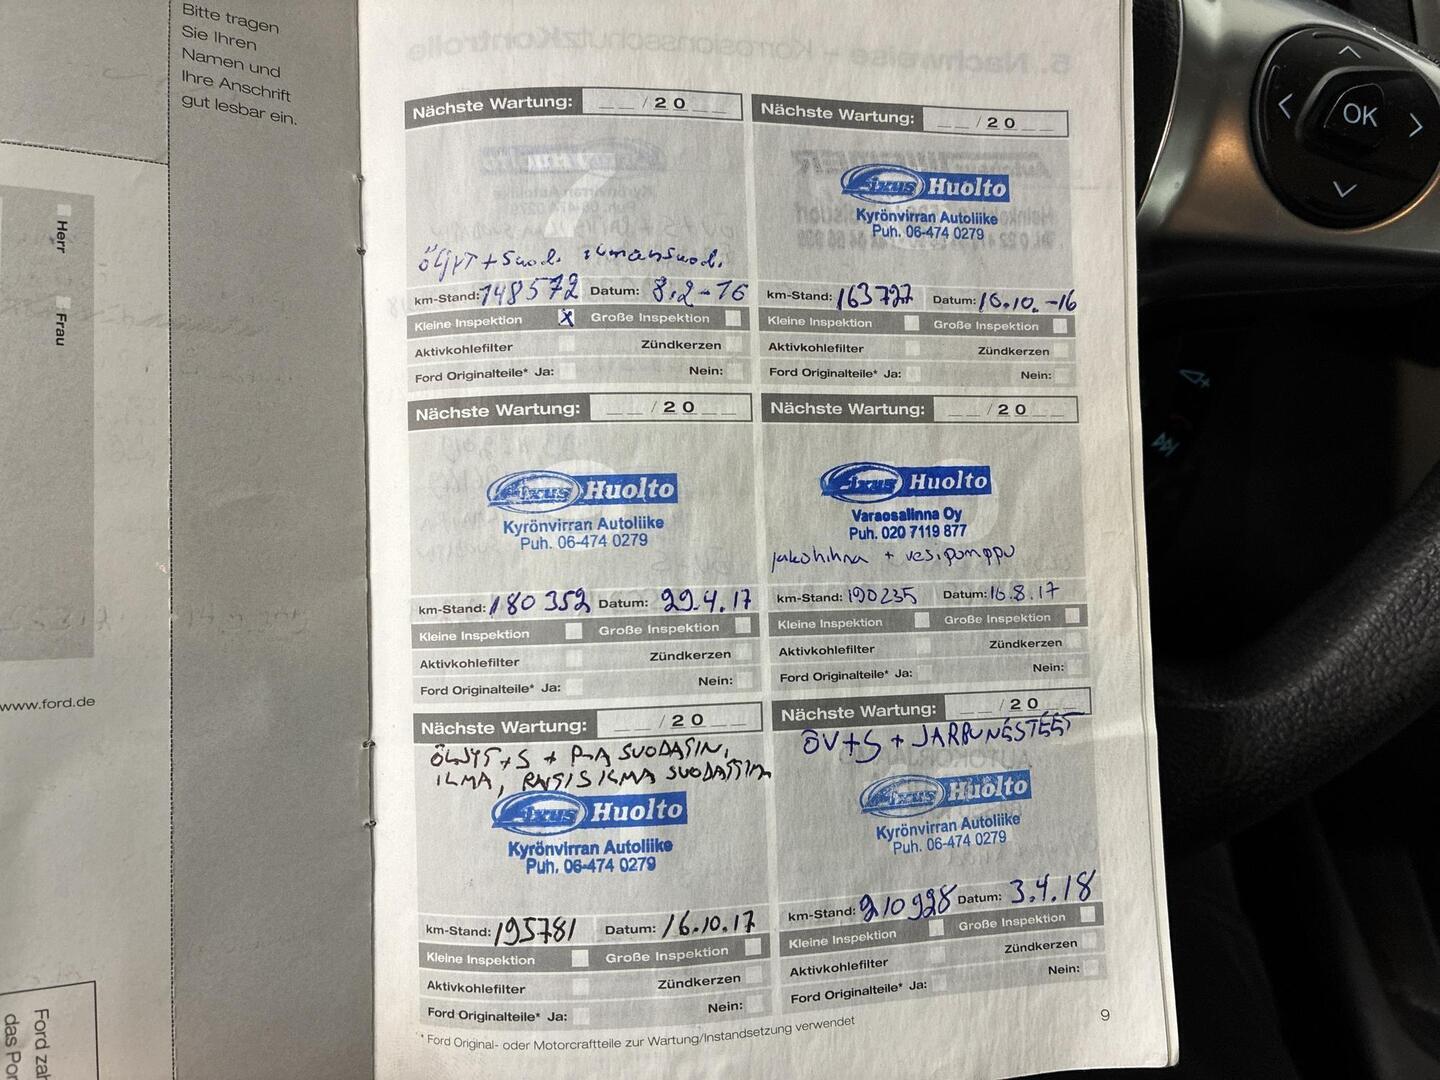 Bitte tragen
Sie Ihren
Namen und
Ihre Anschrift
gut lesbar ein.
Herr
Frau
www.ford.de
Ford
das
Nächste Wartung: __/20__
ÖLJYT + Suod. ilmansuod.
km-Stand: 148572 Datum: 8.2-16
Kleine Inspektion X Große Inspektion
Aktivkohlefilter Zündkerzen
Ford Originalteile* Ja: Nein:
Nächste Wartung: __/20__
Fixus Huolto
Kyrönvirran Autoliike
Puh. 06-474 0279
km-Stand: 163727 Datum: 10.10.-16
Kleine Inspektion Große Inspektion
Aktivkohlefilter Zündkerzen
Ford Originalteile* Ja: Nein:
Nächste Wartung: __/20__
Fixus Huolto
Kyrönvirran Autoliike
Puh. 06-474 0279
km-Stand: 180352 Datum: 29.4.17
Kleine Inspektion Große Inspektion
Aktivkohlefilter Zündkerzen
Ford Originalteile* Ja: Nein:
Nächste Wartung: __/20__
Fixus Huolto
Varaosalinna Oy
Puh. 020 7119 877
jakohihna + vesipumppu
km-Stand: 190235 Datum: 16.8.17
Kleine Inspektion Große Inspektion
Aktivkohlefilter Zündkerzen
Ford Originalteile* Ja: Nein:
Nächste Wartung: __/20__
ÖLJYT+S + P-A SUODATIN,
ILMA, RAITISILMA SUODATTIM
Fixus Huolto
Kyrönvirran Autoliike
Puh. 06-474 0279
km-Stand: 195781 Datum: 16.10.17
Kleine Inspektion Große Inspektion
Aktivkohlefilter Zündkerzen
Ford Originalteile* Ja: Nein:
Nächste Wartung: __/20__
ÖV+S + JARRUNESTEET
Fixus Huolto
Kyrönvirran Autoliike
Puh. 06-474 0279
km-Stand: 210928 Datum: 3.4.18
Kleine Inspektion Große Inspektion
Aktivkohlefilter Zündkerzen
Ford Originalteile* Ja: Nein:
* Ford Original- oder Motorcraftteile zur Wartung/Instandsetzung verwendet
9
OK